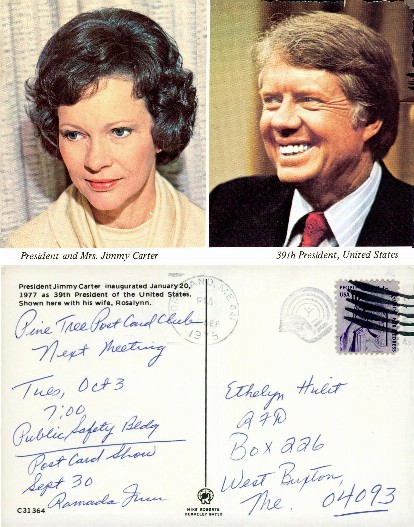 President and Mrs. Jimmy Carter
39th President, United States
President Jimmy Carter inaugurated January 20,
1977 as 39th President of the United States.
Shown here with his wife, Rosalynn.
Pine Tree Post Card Club
Next Meeting
Tues, Oct 3
7:00
Public Safety Bldg
Post Card Show
Sept 30
Ramada Inn
C31364
MIKE ROBERTS
BERKELEY 94710
PM
SEP
USA
Ethelyn Hulit
RFD
Box 226
West Buxton,
Me. 04093